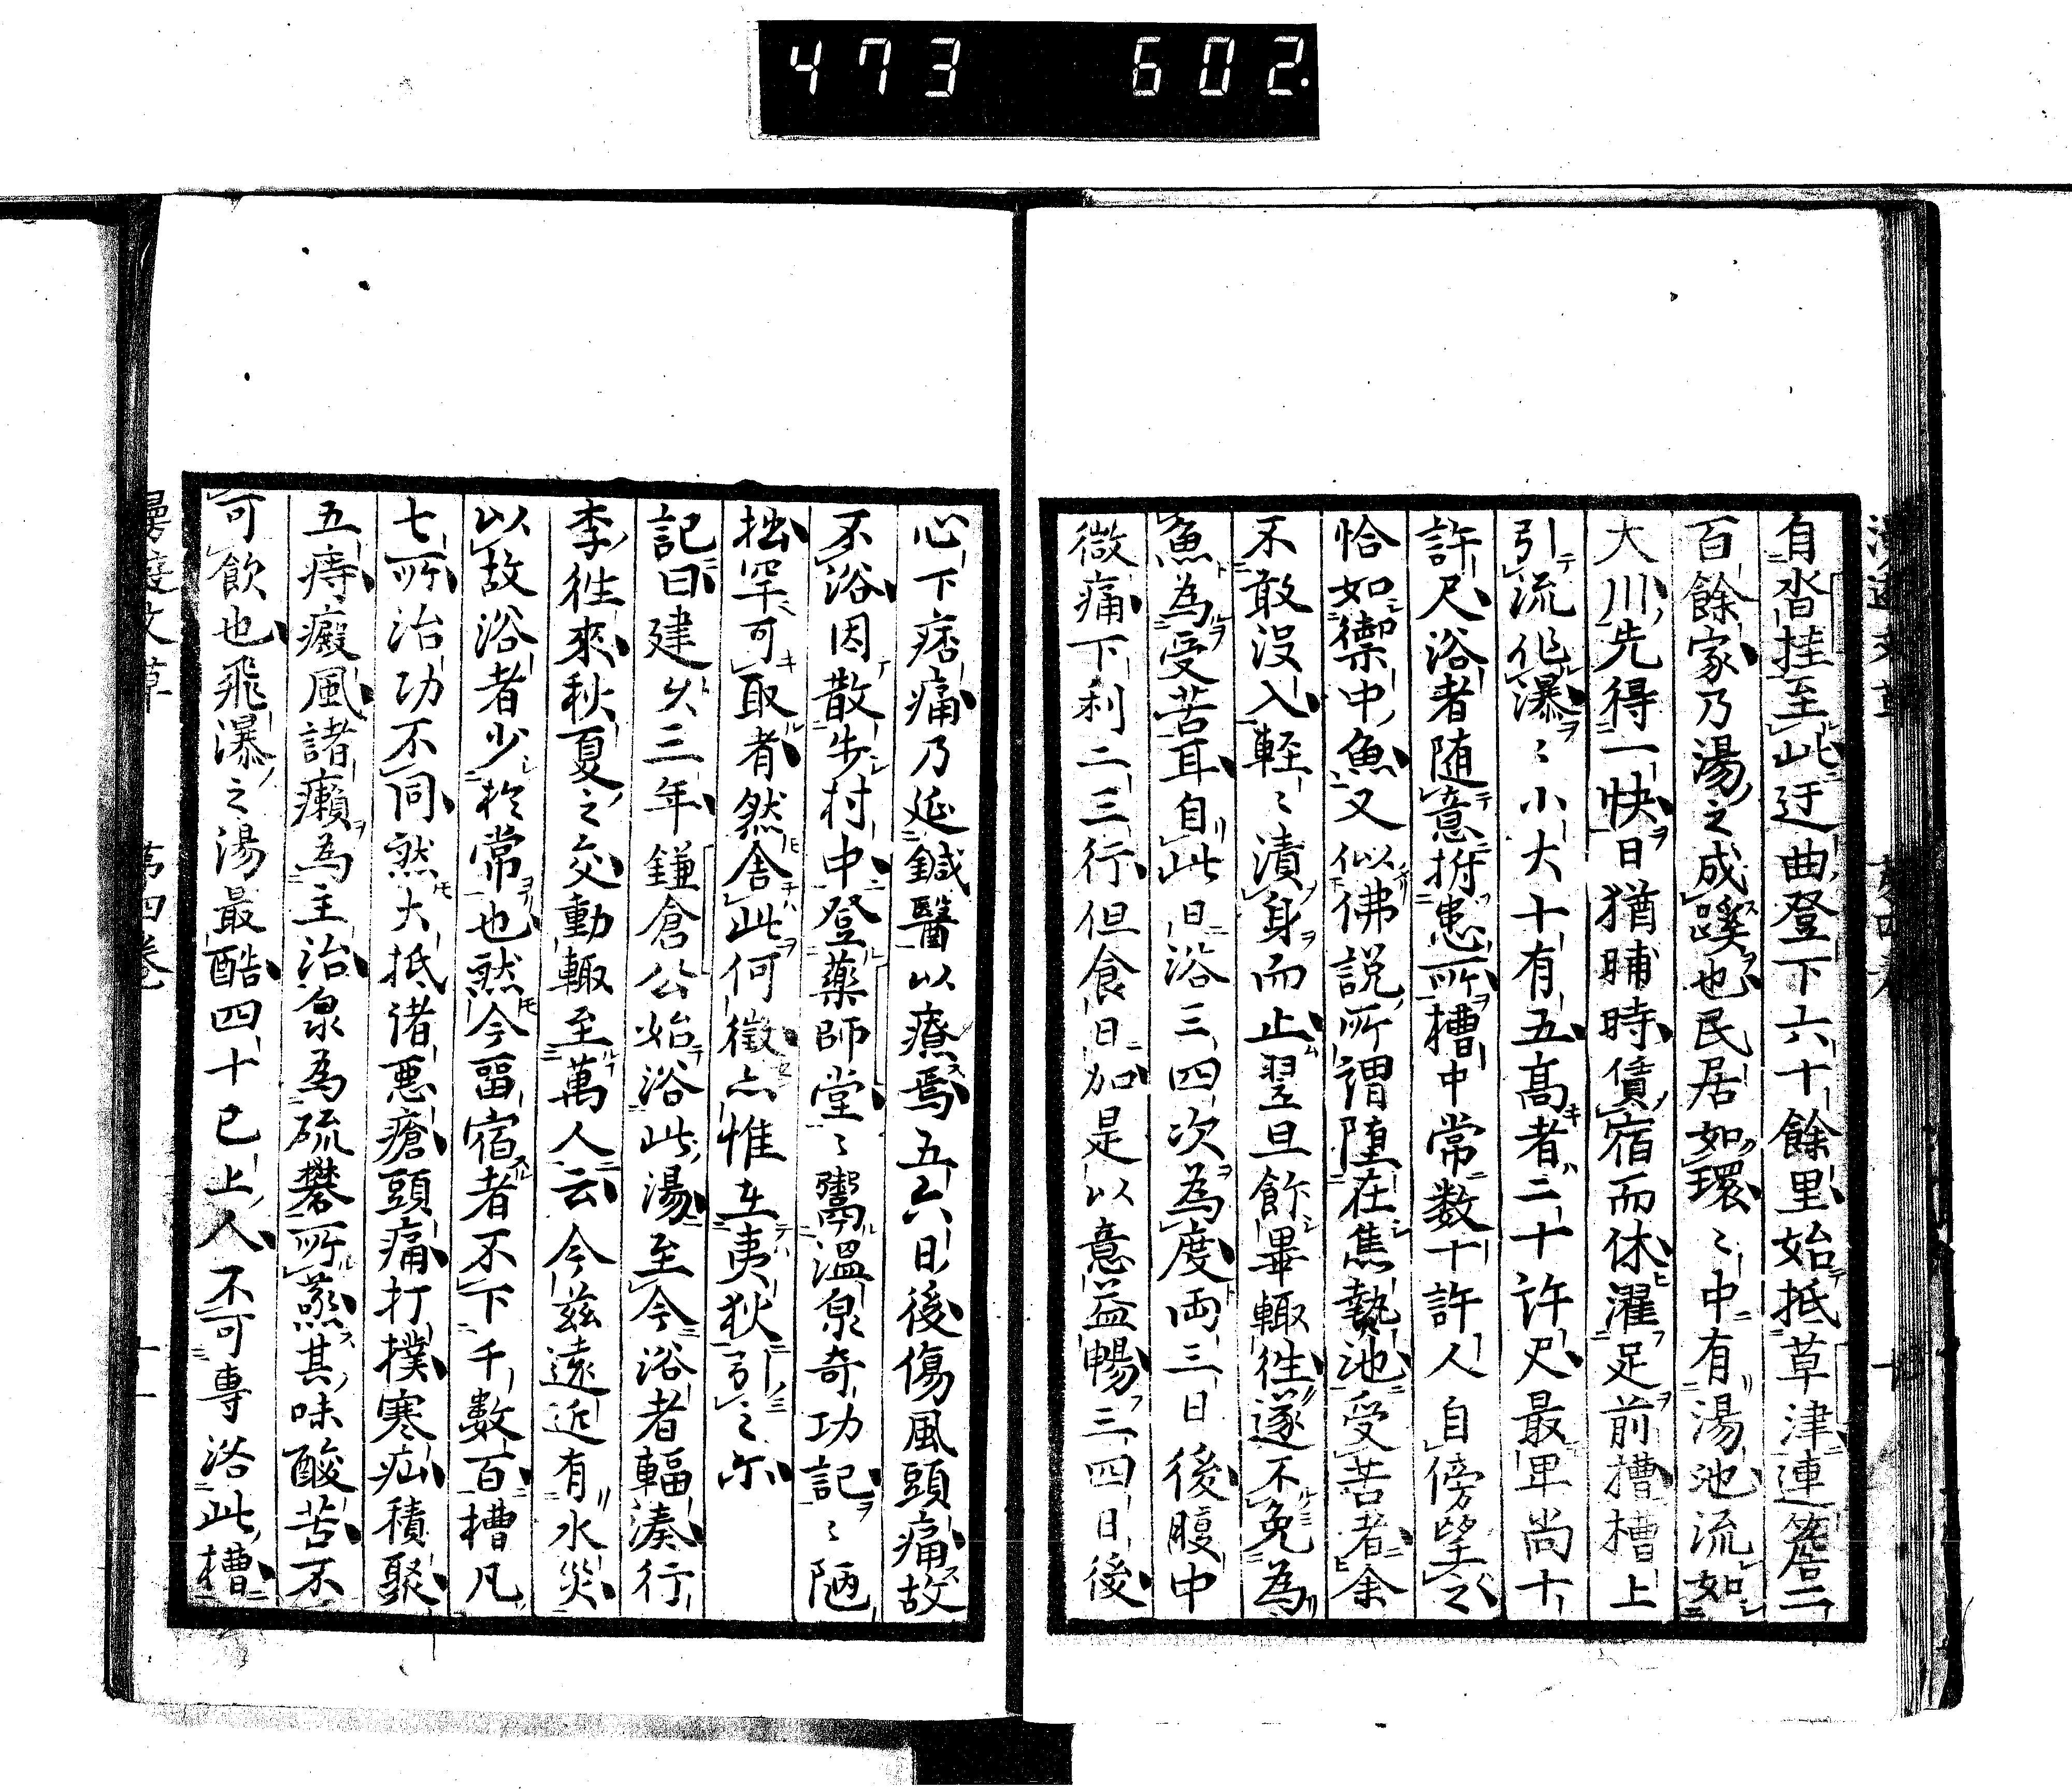 473 602.
自沓挂至此迂曲登下六十餘里始抵草津連簷二
百餘家乃湯之成蹊也民居如環〻中有湯池流如
大川先得一快日猶晡時賃宿而休濯足前槽槽上
引流作瀑〻小大十有五高者二十許尺最卑尚十
許尺浴者随意拊患所槽中常数十許人自傍望之
恰如禦中魚又似佛説所謂堕在焦熱池受苦者余
不敢没入軽〻漬身而止翌旦飰畢輙徃遂不免為
魚為受苦耳自此日浴三四次為度両三日後腹中
微痛下利二三行但食日加是以意益暢三四日後
心下痞痛乃延鍼醫以療焉五六日後傷風頭痛故
不浴因散步村中登薬師堂〻鬻温泉奇功記〻陋
拙罕可取者然舍此何徴亦惟在夷狄引之尓
記曰建久三年鎌倉公始浴此湯至今浴者輻湊行
李徃來秋夏之交動輙至萬人云今茲遠近有水災
以故浴者少於常也然今畱宿者不下千數百槽凡
七所治功不同然大抵諸悪瘡頭痛打撲寒疝積聚
五痔癜風諸癩為主治泉為硫礬所蒸其味酸苦不
可飲也飛瀑之湯最酷四十已上人不可專浴此槽
漫遊文草 第四卷 十一